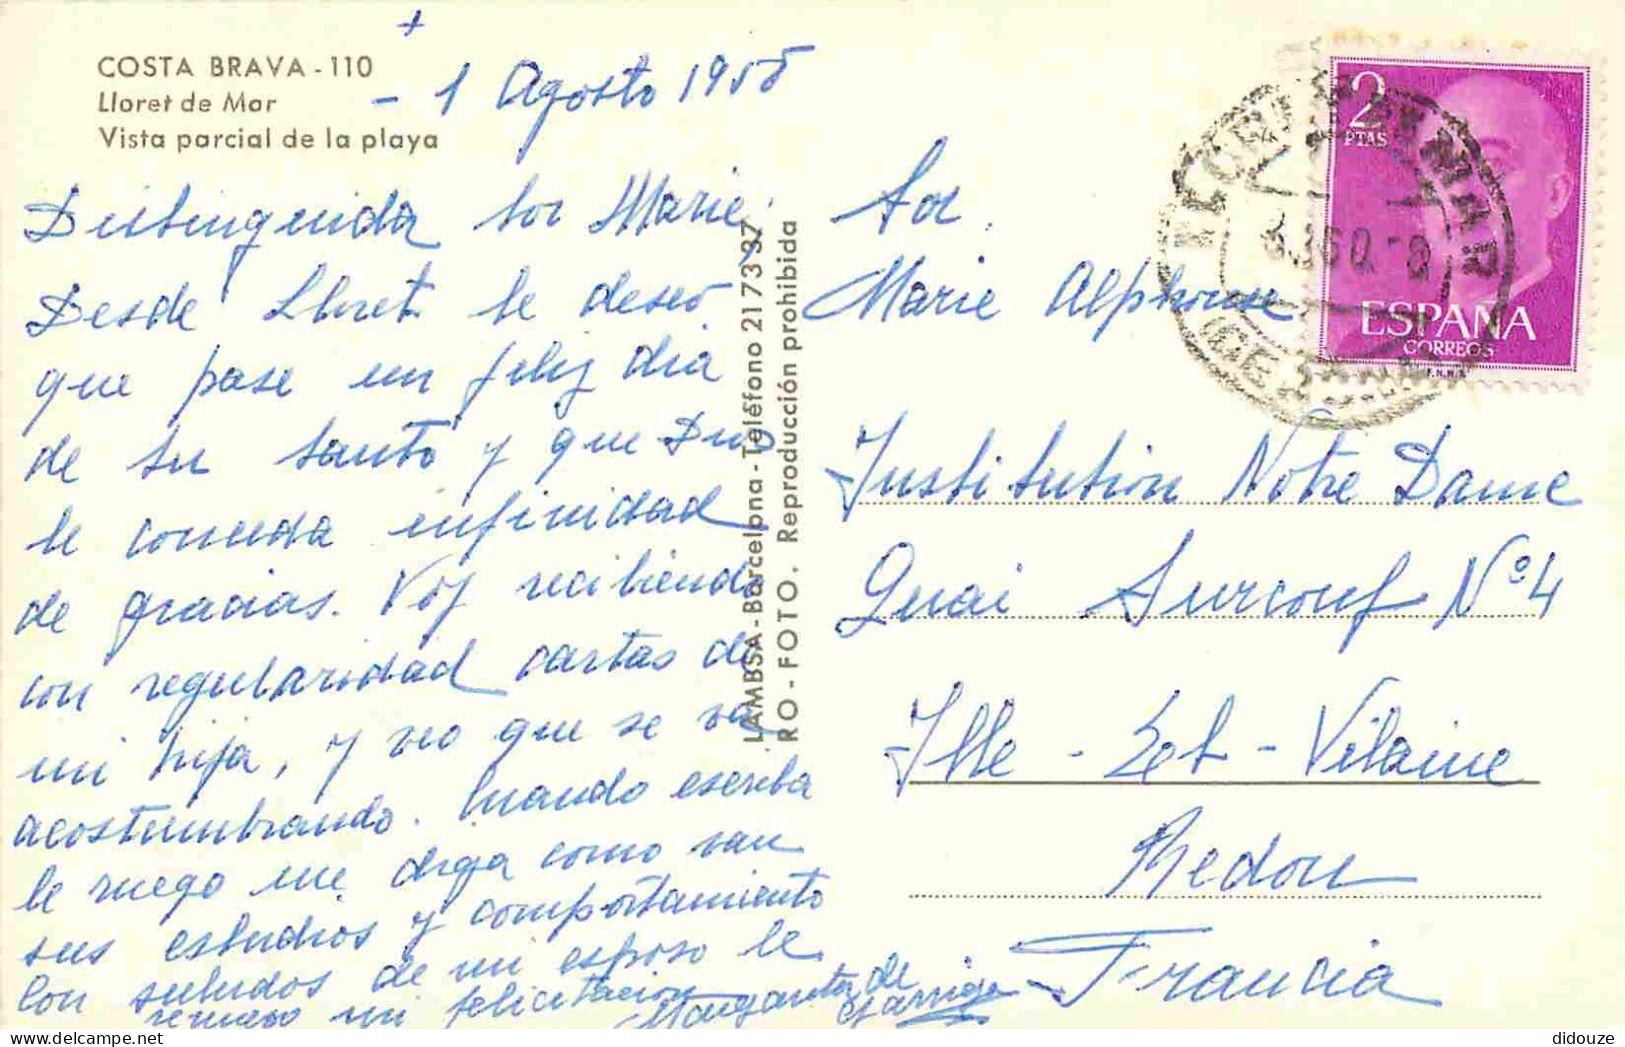 COSTA BRAVA - 110
Lloret de Mar
Vista parcial de la playa
+
- 1 Agosto 1958
Distinguida Sor Marie:
Desde Lloret le deseo
que pase un feliz dia
de su santo y que Dios
le conceda infinidad
de gracias. Voy recibiendo
con regularidad cartas de
mi hija, y veo que se va
acostumbrando. Cuando escriba
le ruego me diga como van
sus estudios y comportamiento
Con saludos de mi esposo le
renuevo mi felicitacion
Margarita de
Garriga
LAMBSA - Barcelona - Teléfono 21 73 37
RO - FOTO. Reproducción prohibida
Sor
Marie Alphonse
Institution Notre Dame
Quai Surcouf Nº 4
Ille - Et - Vilaine
Redon
Francia
2
PTAS
ESPAÑA
CORREOS
F.N.M.T.
didouze